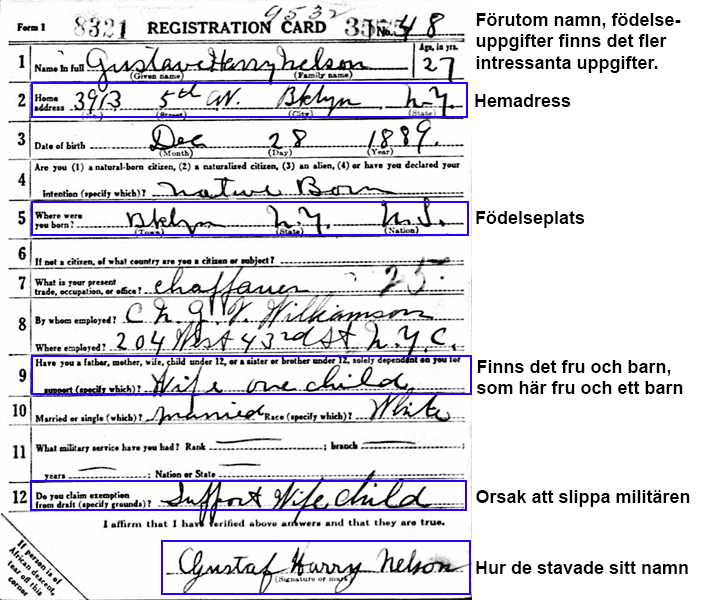 9532
Form 1 8321 REGISTRATION CARD No. 48
Förutom namn, födelse-
uppgifter finns det fler
intressanta uppgifter.
1 Name in full Gustave Harry Nelson Age, in yrs. 27
(Given name) (Family name)
2 Home address 3913 5th Av. Bklyn N.Y.
(No.) (Street) (City) (State)
Hemadress
3 Date of birth Dec 28 1889.
(Month) (Day) (Year)
4 Are you (1) a natural-born citizen, (2) a naturalized citizen, (3) an alien, (4) or have you declared your
intention (specify which)? Native Born
5 Where were you born? Bklyn N.Y. U.S.
(Town) (State) (Nation)
Födelseplats
6 If not a citizen, of what country are you a citizen or subject?
7 What is your present trade, occupation, or office? Chaffauer 25.
8 By whom employed? Williamson
Where employed? 204 West 43rd St N.Y.C.
9 Have you a father, mother, wife, child under 12, or a sister or brother under 12, solely dependent on you for
support (specify which)? Wife one child
Finns det fru och barn,
som här fru och ett barn
10 Married or single (which)? Married Race (specify which)? White
11 What military service have you had? Rank ; branch ;
years ; Nation or State
12 Do you claim exemption from draft (specify grounds)? Support Wife child
Orsak att slippa militären
I affirm that I have verified above answers and that they are true.
If person is of
African descent,
tear off this
corner
Gustaf Harry Nelson
(Signature or mark)
Hur de stavade sitt namn